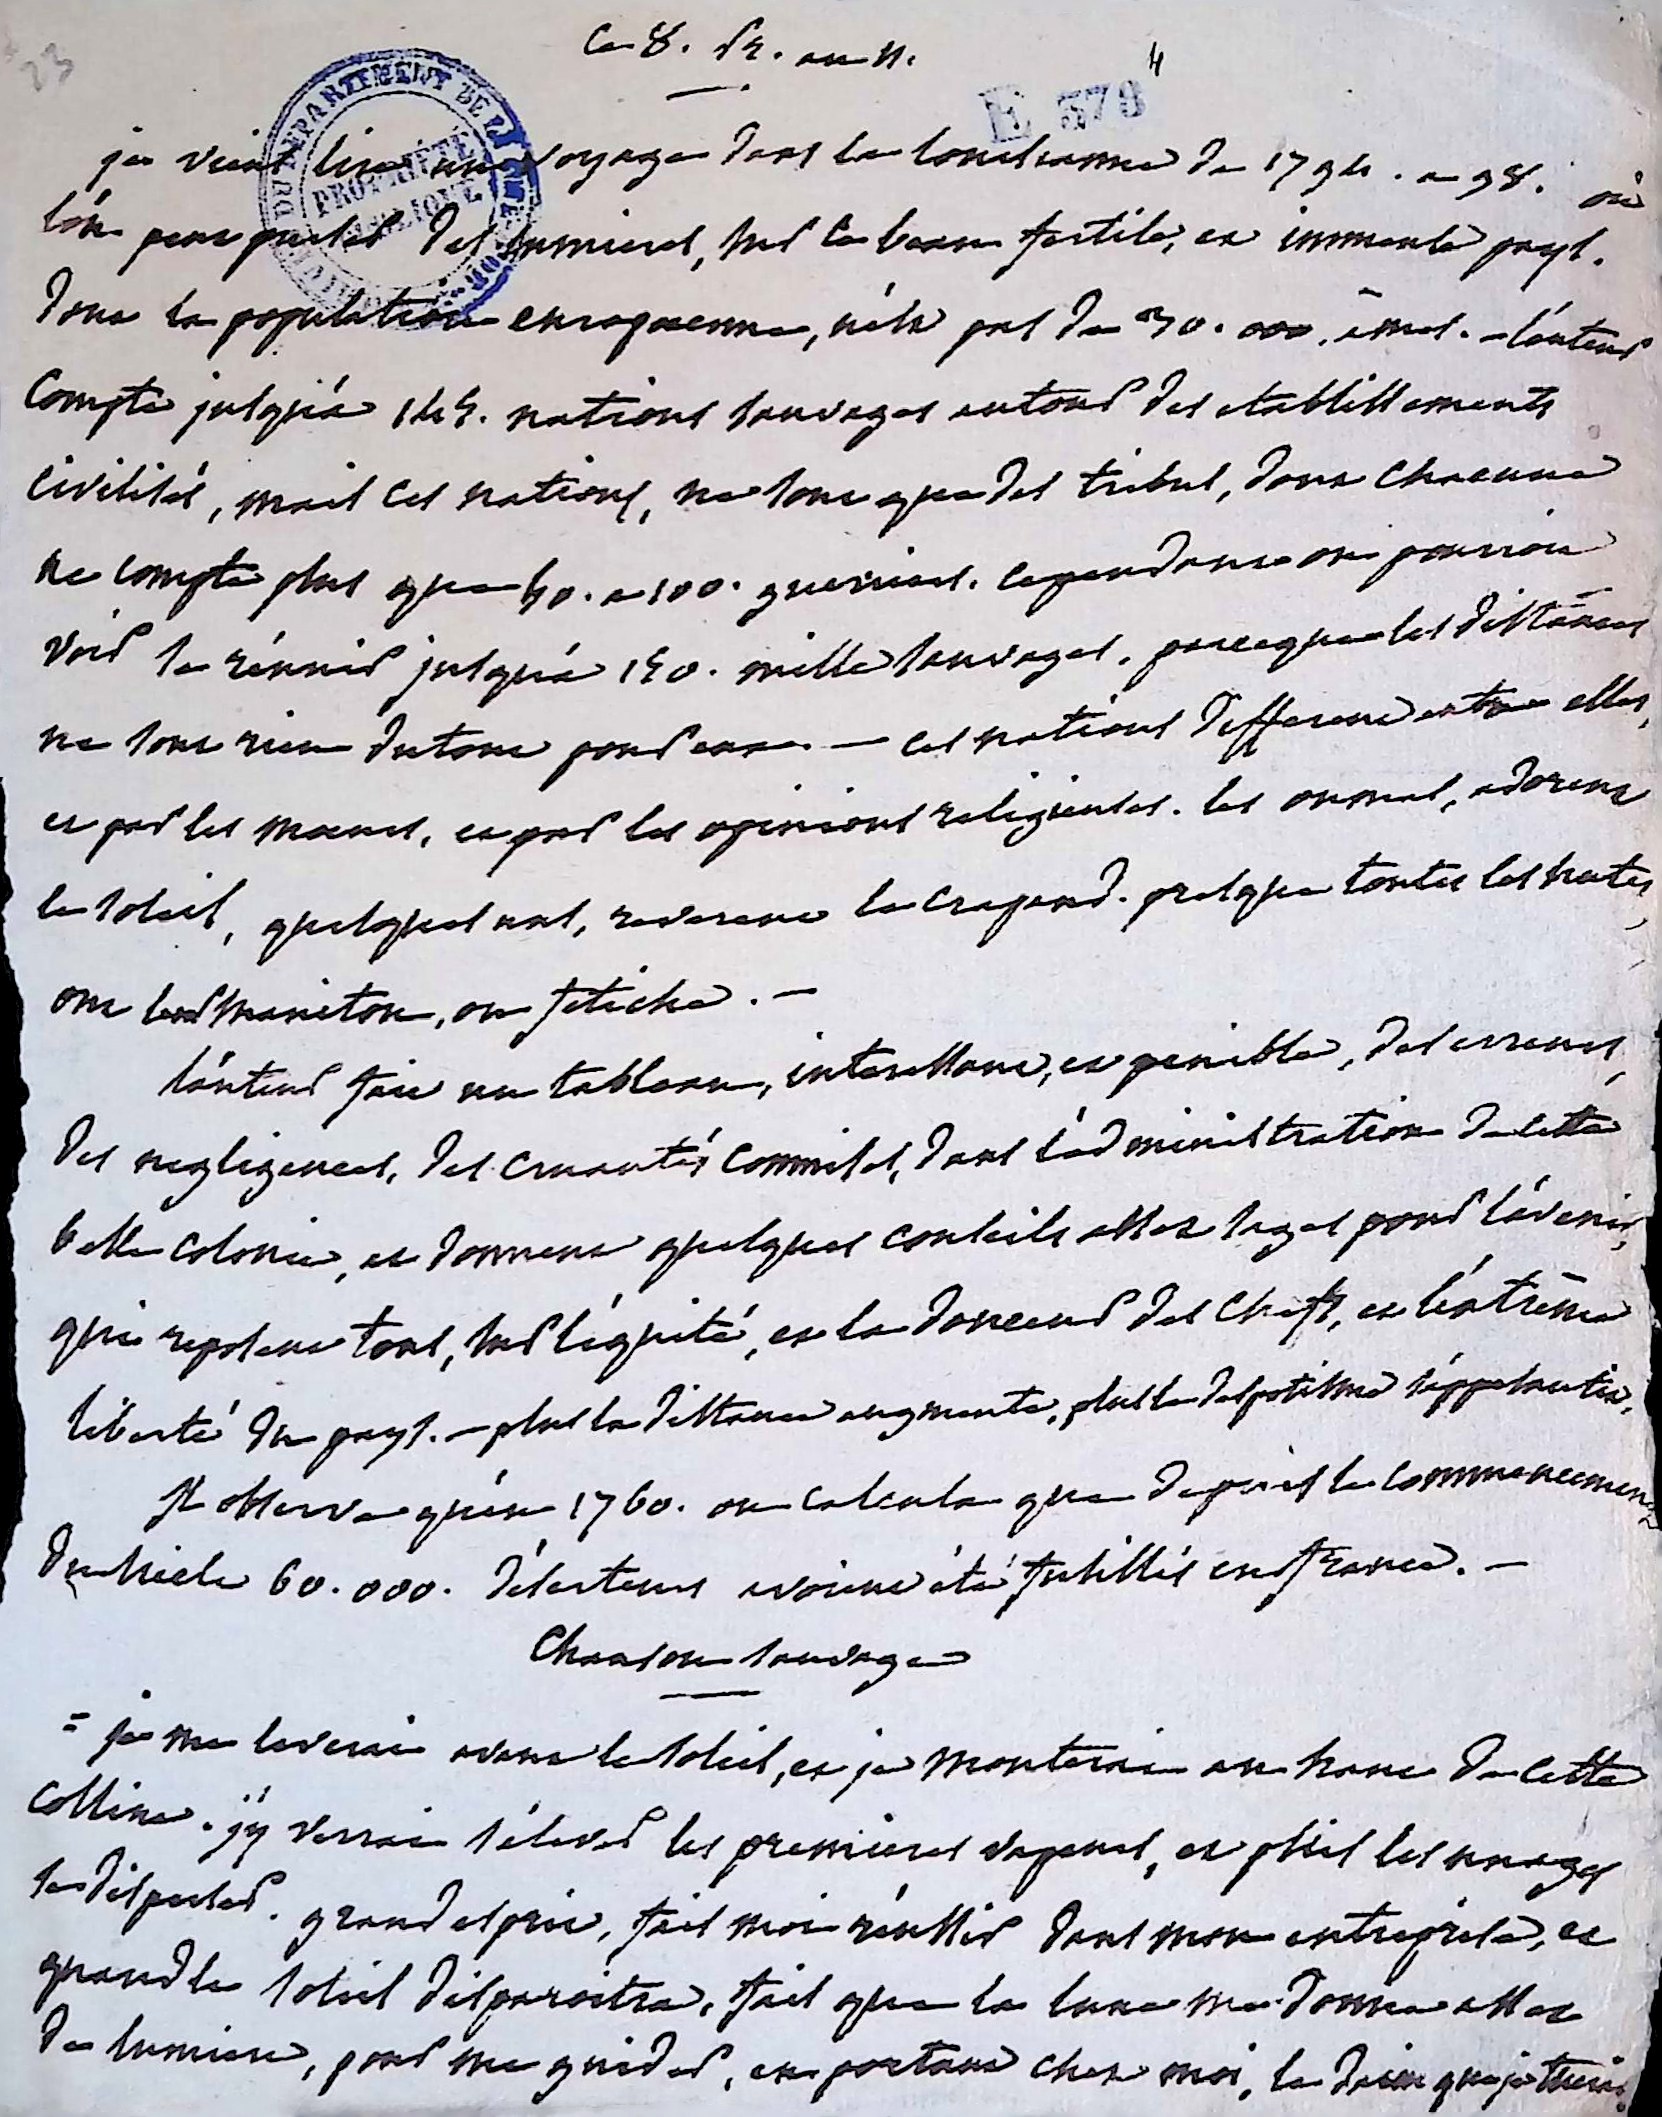 Ce 8. fr. an 11.
4
23
E 378
DU DEPARTEMENT DE
PROPRIÉTÉ PUBLIQUE
je viens lire un voyage dans la Louisianne de 1794. a 98. où
l'on peut puiser des lumieres, sur ce beau fertile, et immense pays.
dont la population europaenne, n'est pas de 30.000. âmes. – l'auteur
compte jusqu'à 145. nations sauvages autour des etablissements
civilisés, mais ces nations, ne sont que des tribus, dont chacune
ne compte plus que 50. a 100. guerriers. cependant on pourroit
voir se réunir jusqu'à 150. mille sauvages, parceque les distances
ne sont rien du tout pour eux. – ces nations different entre elles,
et par les moeurs, et par les opinions religieuses. les onmas, adorent
le soleil, quelques uns, reverent le crapaud. presque toutes les huttes,
ont leur manitou, ou fetiche. –
l'auteur fait un tableau, interessant, et penible, des erreurs,
des negligences, des cruautés commises, dans l'administration de cette
belle colonie, et donnent quelques conseils assez sages pour l'avenir,
qui reposent tous, sur l'équité, et la douceur des chefs, et l'extrême
liberté du pays. – plus la distance augmente, plus le despotisme s'appesantit.
Il observe qu'en 1760. on calcula que depuis le commencement
du siecle 60.000. déserteurs avoient été fusillés en france. –
Chanson sauvage
= je me leverai avant le soleil, et je monterai au haut de cette
colline. j'y verrai s'élever les premieres vapeurs, et puis les nuages
se disperser. grand esprit, fais moi réussir dans mon entreprise, et
quand le soleil disparoitra, fais que la lune me donne assez
de lumiere, pour me guider, en portant chez moi, le daim que je tuerai.